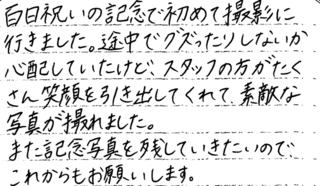 百日祝いの記念で初めて撮影に
行きました。途中でグズったりしないか
心配していたけど、スタッフの方がたく
さん笑顔を引き出してくれて、素敵な
写真が撮れました。
また記念写真を残していきたいので、
これからもお願いします。